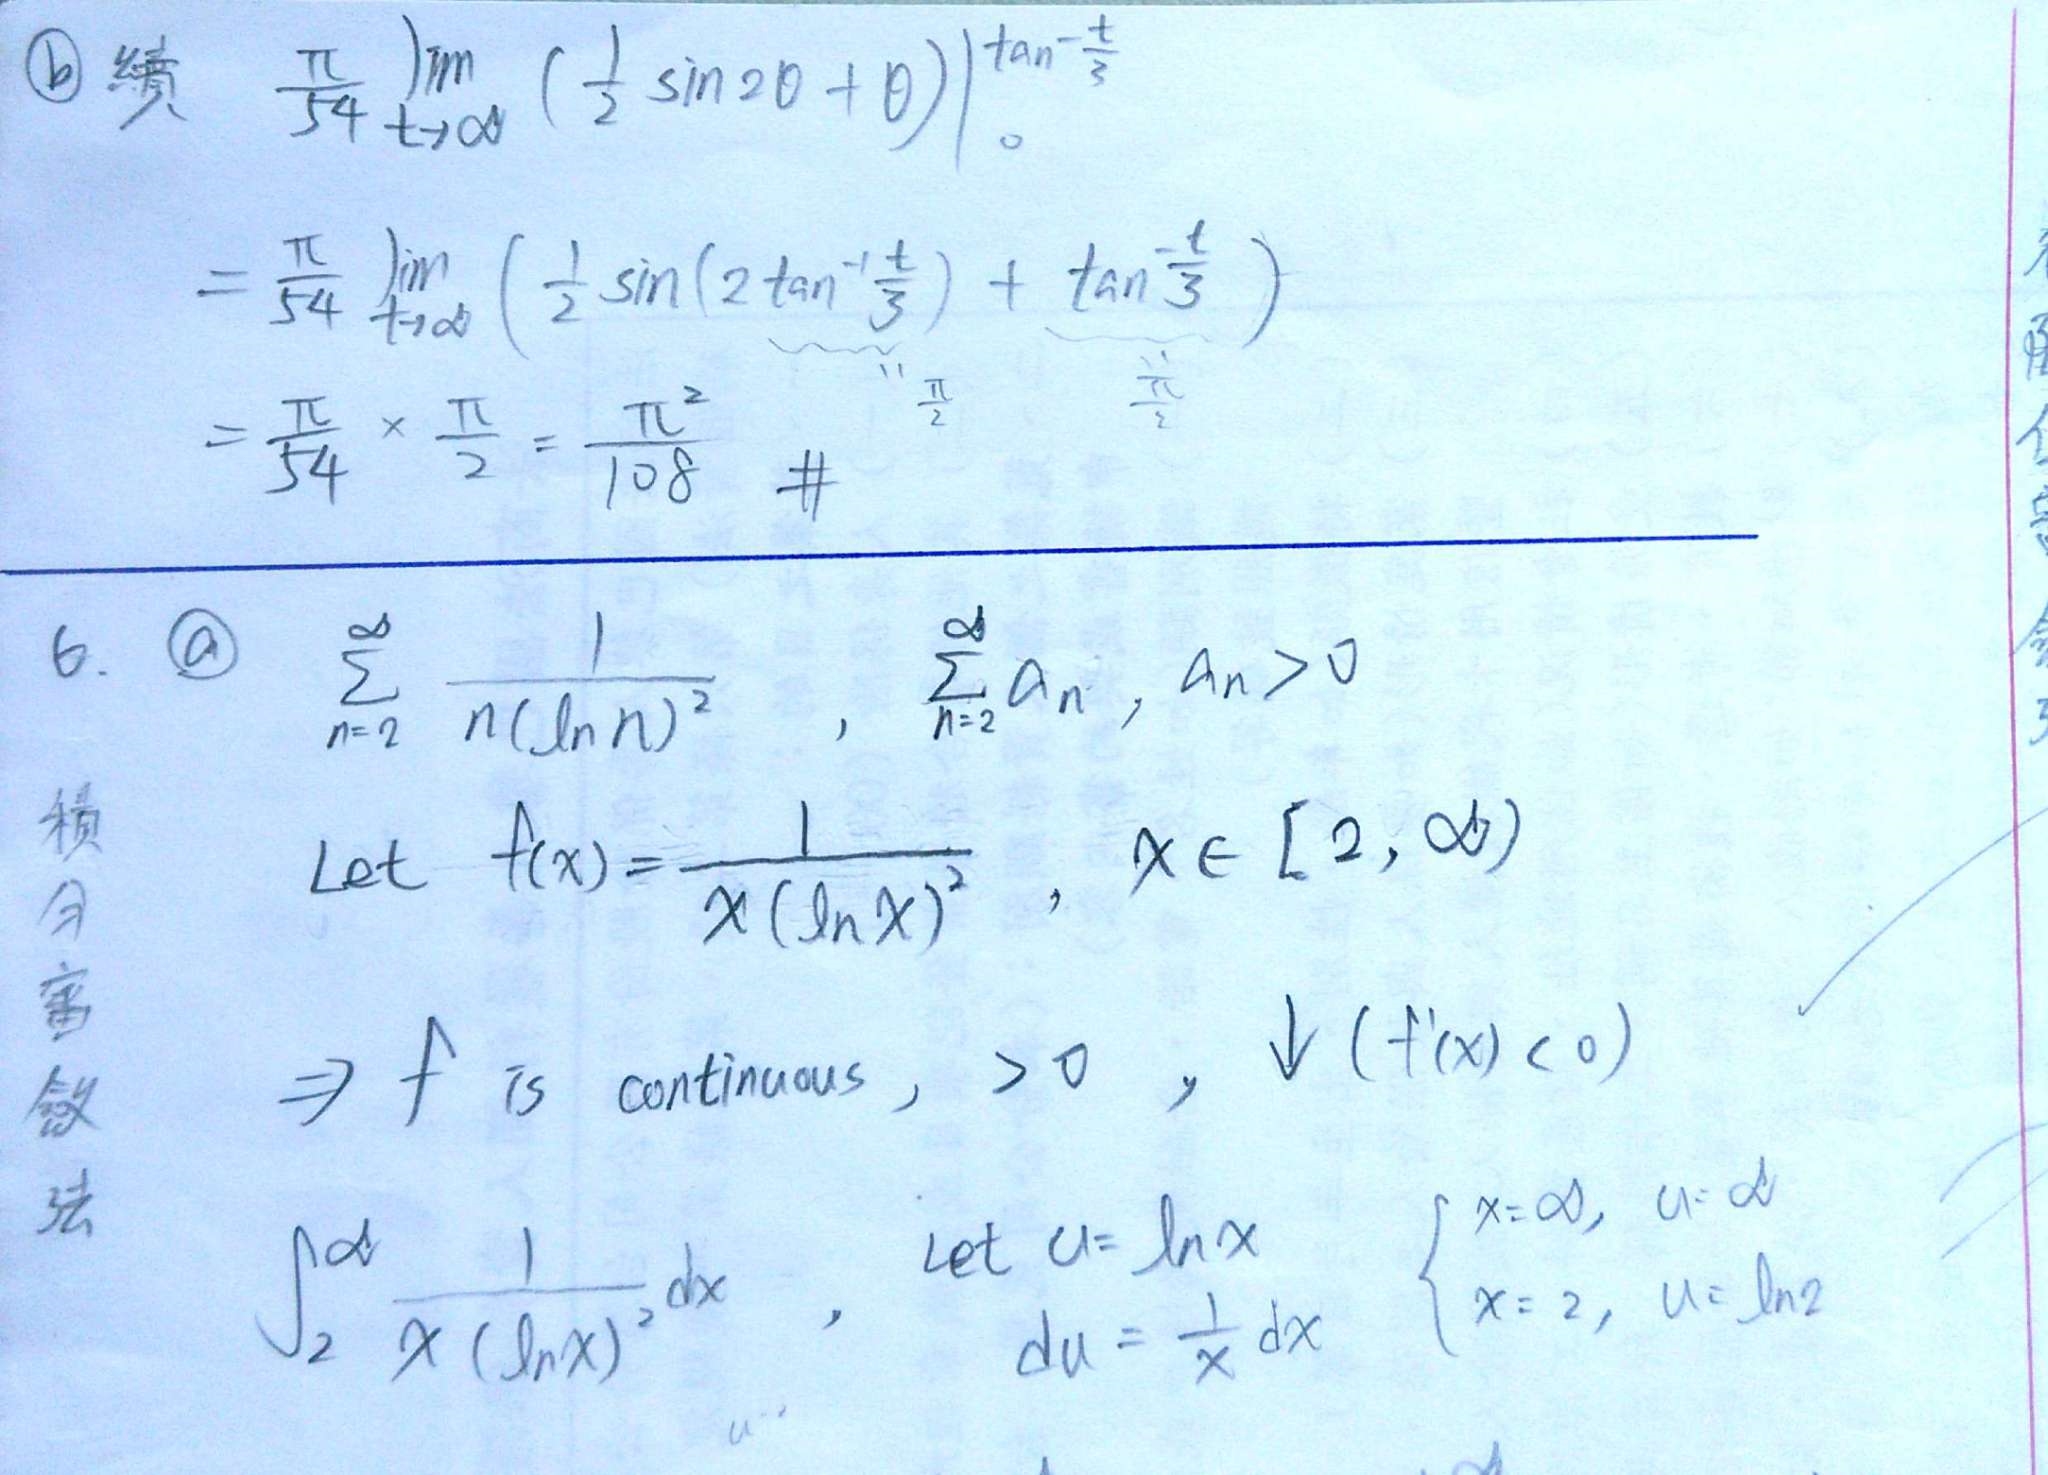 ⓑ 續 π/54 lim t→∞ (1/2 sin2θ + θ) | tan⁻ t/3 0
= π/54 lim t→∞ (1/2 sin(2 tan⁻¹ t/3) + tan⁻ t/3)
" π/2 " π/2
= π/54 × π/2 = π²/108 #
6. ⓐ ∞ Σ n=2 1/n(ln n)² , ∞ Σ n=2 an , an > 0
積分審斂法
Let f(x) = 1/x(ln x)² , x ∈ [2, ∞)
⇒ f is continuous, > 0 , ↓ (f'(x) < 0)
∫₂^∞ 1/x(ln x)² dx , Let u = ln x { x = ∞, u = ∞
du = 1/x dx x = 2, u = ln2